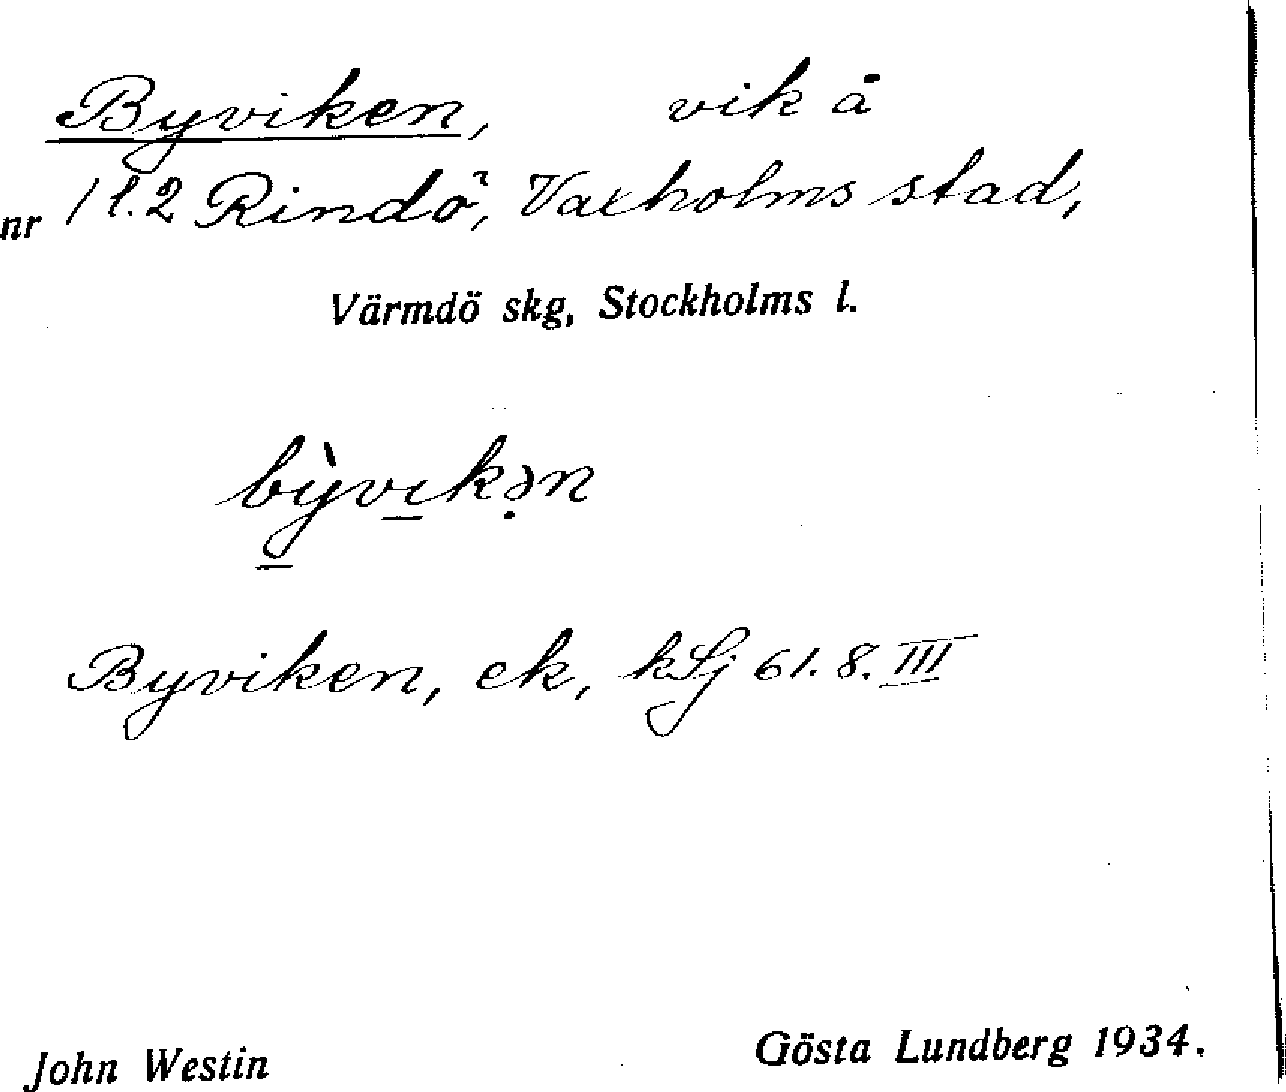 Byviken, vik å
nr 1 l.2 Rindö, Vaxholms stad,
Värmdö skg, Stockholms l.
bỳvıkən
Byviken, ek, kSj 61.8.III
John Westin Gösta Lundberg 1934.